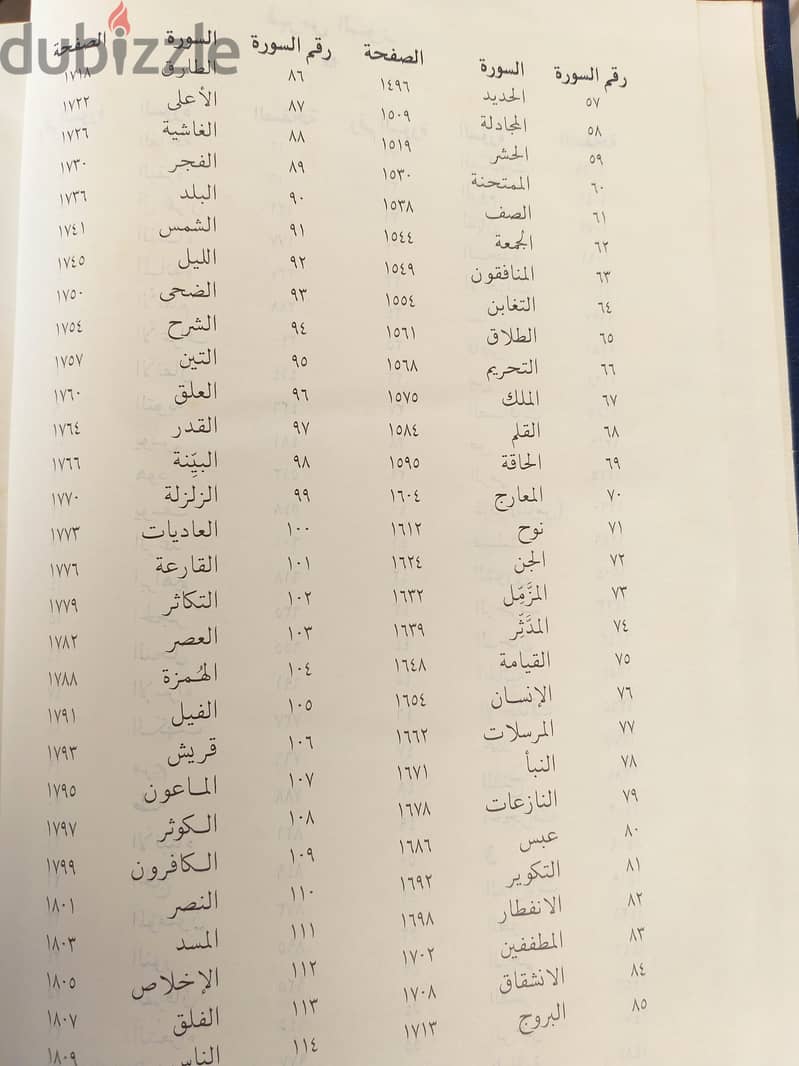 dubizzle
رقم السورة السورة الصفحة
٥٧ الحديد ١٤٩٦
٥٨ المجادلة ١٥٠٩
٥٩ الحشر ١٥١٩
٦٠ الممتحنة ١٥٣٠
٦١ الصف ١٥٣٨
٦٢ الجمعة ١٥٤٤
٦٣ المنافقون ١٥٤٩
٦٤ التغابن ١٥٥٤
٦٥ الطلاق ١٥٦١
٦٦ التحريم ١٥٦٨
٦٧ الملك ١٥٧٥
٦٨ القلم ١٥٨٤
٦٩ الحاقة ١٥٩٥
٧٠ المعارج ١٦٠٤
٧١ نوح ١٦١٢
٧٢ الجن ١٦٢٤
٧٣ المزَّمِّل ١٦٣٢
٧٤ المدَّثِّر ١٦٣٩
٧٥ القيامة ١٦٤٨
٧٦ الإنسان ١٦٥٤
٧٧ المرسلات ١٦٦٢
٧٨ النبأ ١٦٧١
٧٩ النازعات ١٦٧٨
٨٠ عبس ١٦٨٦
٨١ التكوير ١٦٩٢
٨٢ الانفطار ١٦٩٨
٨٣ المطففين ١٧٠٢
٨٤ الانشقاق ١٧٠٨
٨٥ البروج ١٧١٣
رقم السورة السورة الصفحة
٨٦ الطارق ١٧١٨
٨٧ الأعلى ١٧٢٢
٨٨ الغاشية ١٧٢٦
٨٩ الفجر ١٧٣٠
٩٠ البلد ١٧٣٦
٩١ الشمس ١٧٤١
٩٢ الليل ١٧٤٥
٩٣ الضحى ١٧٥٠
٩٤ الشرح ١٧٥٤
٩٥ التين ١٧٥٧
٩٦ العلق ١٧٦٠
٩٧ القدر ١٧٦٤
٩٨ البيِّنة ١٧٦٦
٩٩ الزلزلة ١٧٧٠
١٠٠ العاديات ١٧٧٣
١٠١ القارعة ١٧٧٦
١٠٢ التكاثر ١٧٧٩
١٠٣ العصر ١٧٨٢
١٠٤ الهُمزة ١٧٨٨
١٠٥ الفيل ١٧٩١
١٠٦ قريش ١٧٩٣
١٠٧ الماعون ١٧٩٥
١٠٨ الكوثر ١٧٩٧
١٠٩ الكافرون ١٧٩٩
١١٠ النصر ١٨٠١
١١١ المَسد ١٨٠٣
١١٢ الإخلاص ١٨٠٥
١١٣ الفلق ١٨٠٧
١١٤ الناس ١٨٠٩